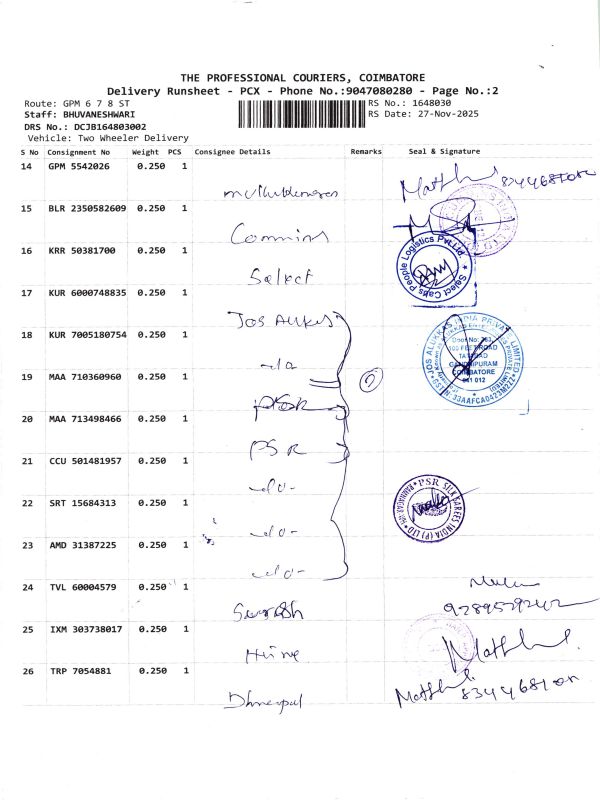 THE PROFESSIONAL COURIERS, COIMBATORE
Delivery Runsheet - PCX - Phone No.:9047080280 - Page No.:2
Route: GPM 6 7 8 ST
RS No.: 1648030
Staff: BHUVANESHWARI
RS Date: 27-Nov-2025
DRS No.: DCJB164803002
Vehicle: Two Wheeler Delivery
S No Consignment No Weight PCS Consignee Details Remarks Seal & Signature
14 GPM 5542026 0.250 1
15 BLR 2350582609 0.250 1
Commins
16 KRR 50381700 0.250 1
Select
Select Cabs People Logistics Pvt.Ltd.
17 KUR 6000748835 0.250 1
Jos Alukks
18 KUR 7005180754 0.250 1
JOS ALUKKAS INDIA PRIVATE LIMITED
100 FEET ROAD
TATABAD
GANDHIPURAM
COIMBATORE
641 012
GSTIN:33AAFCA0423M2ZZ
19 MAA 710360960 0.250 1
20 MAA 713498466 0.250 1
PSR
21 CCU 501481957 0.250 1
-do-
PSR SILK SAREES INDIA (P) LTD
22 SRT 15684313 0.250 1
-do-
23 AMD 31387225 0.250 1
-do-
24 TVL 60004579 0.250 1
Suresh
25 IXM 303738017 0.250 1
26 TRP 7054881 0.250 1
Dhanapal